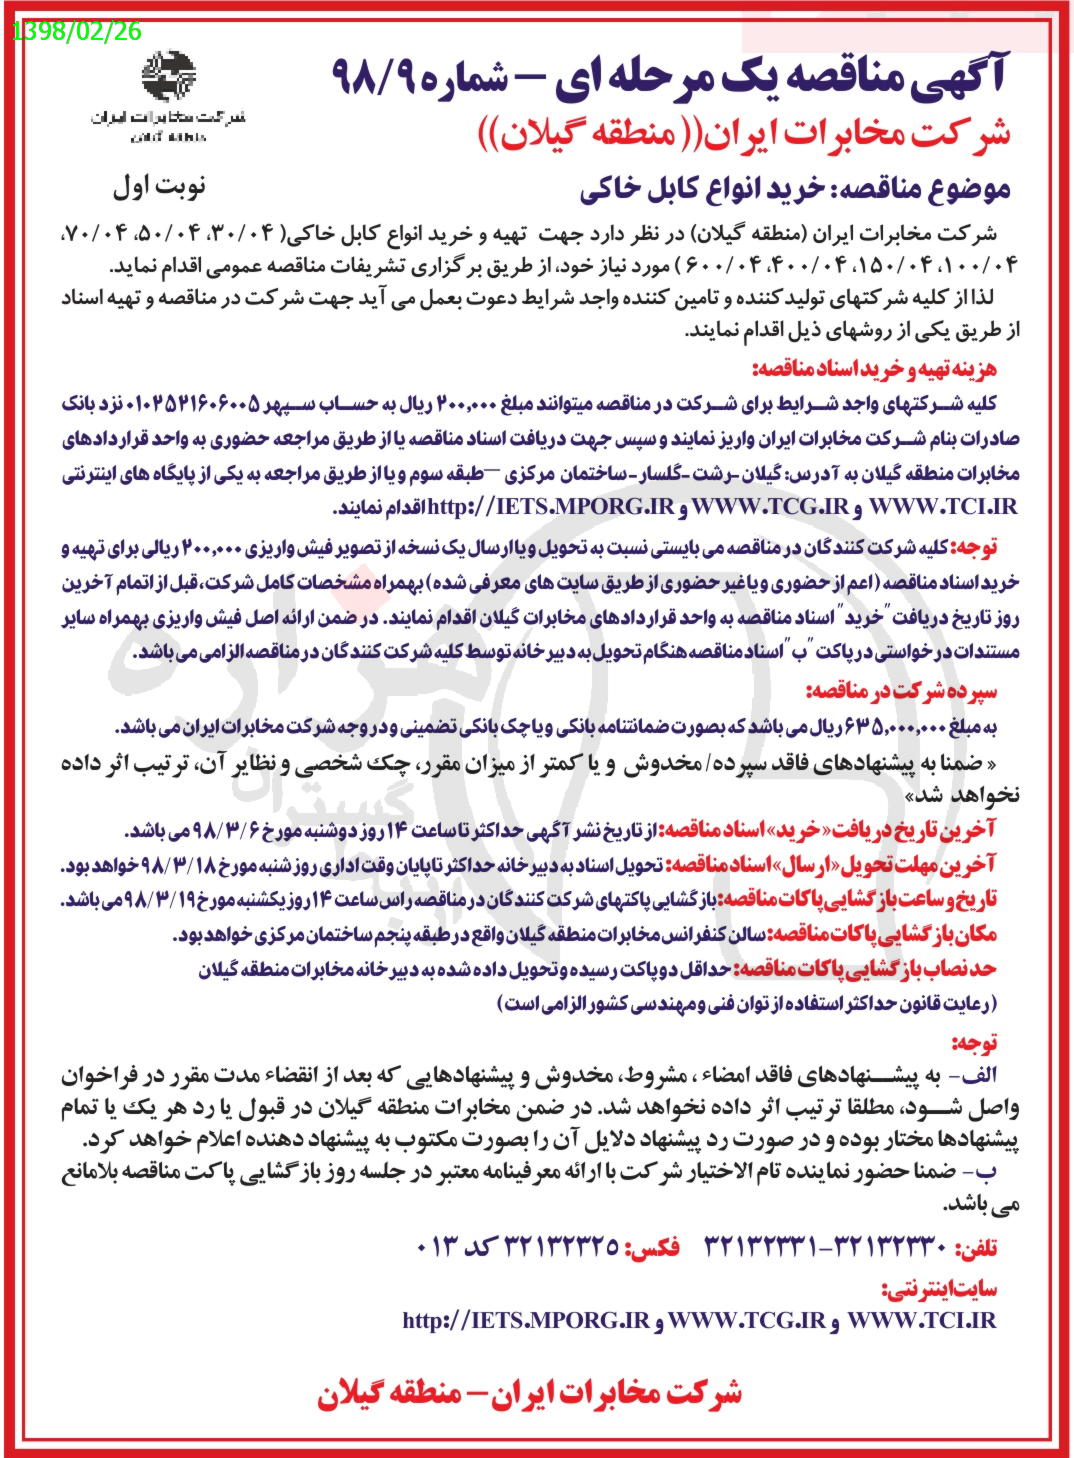 1398/02/26
آگهی مناقصه یک مرحله ای – شماره ۹۸/۹
شرکت مخابرات ایران
منطقه گیلان
شرکت مخابرات ایران((منطقه گیلان))
موضوع مناقصه: خرید انواع کابل خاکی
نوبت اول
شرکت مخابرات ایران (منطقه گیلان) در نظر دارد جهت تهیه و خرید انواع کابل خاکی( ۳۰/۰۴، ۵۰/۰۴، ۷۰/۰۴،
۱۰۰/۰۴، ۱۵۰/۰۴، ۴۰۰/۰۴، ۶۰۰/۰۴ ) مورد نیاز خود، از طریق برگزاری تشریفات مناقصه عمومی اقدام نماید.
لذا از کلیه شرکتهای تولید کننده و تامین کننده واجد شرایط دعوت بعمل می آید جهت شرکت در مناقصه و تهیه اسناد
از طریق یکی از روشهای ذیل اقدام نمایند.
هزینه تهیه و خرید اسناد مناقصه:
کلیه شرکتهای واجد شرایط برای شرکت در مناقصه میتوانند مبلغ ۲۰۰,۰۰۰ ریال به حساب سپهر ۰۱۰۲۵۲۱۶۰۶۰۰۵ نزد بانک
صادرات بنام شرکت مخابرات ایران واریز نمایند و سپس جهت دریافت اسناد مناقصه یا از طریق مراجعه حضوری به واحد قراردادهای
مخابرات منطقه گیلان به آدرس: گیلان-رشت-گلسار-ساختمان مرکزی –طبقه سوم و یا از طریق مراجعه به یکی از پایگاه های اینترنتی
WWW.TCI.IR و WWW.TCG.IR و http://IETS.MPORG.IR اقدام نمایند.
توجه: کلیه شرکت کنندگان در مناقصه می بایستی نسبت به تحویل و یا ارسال یک نسخه از تصویر فیش واریزی ۲۰۰,۰۰۰ ریالی برای تهیه و
خرید اسناد مناقصه (اعم از حضوری و یا غیر حضوری از طریق سایت های معرفی شده) بهمراه مشخصات کامل شرکت، قبل از اتمام آخرین
روز تاریخ دریافت "خرید" اسناد مناقصه به واحد قراردادهای مخابرات گیلان اقدام نمایند. در ضمن ارائه اصل فیش واریزی بهمراه سایر
مستندات درخواستی در پاکت "ب" اسناد مناقصه هنگام تحویل به دبیرخانه توسط کلیه شرکت کنندگان در مناقصه الزامی می باشد.
سپرده شرکت در مناقصه:
به مبلغ ۶۳۵,۰۰۰,۰۰۰ ریال می باشد که بصورت ضمانتنامه بانکی و یا چک بانکی تضمینی و در وجه شرکت مخابرات ایران می باشد.
« ضمنا به پیشنهادهای فاقد سپرده/ مخدوش و یا کمتر از میزان مقرر، چک شخصی و نظایر آن، ترتیب اثر داده
نخواهد شد»
آخرین تاریخ دریافت« خرید» اسناد مناقصه: از تاریخ نشر آگهی حداکثر تا ساعت ۱۴ روز دوشنبه مورخ ۹۸/۳/۶ می باشد.
آخرین مهلت تحویل« ارسال» اسناد مناقصه: تحویل اسناد به دبیرخانه حداکثر تا پایان وقت اداری روز شنبه مورخ ۹۸/۳/۱۸ خواهد بود.
تاریخ و ساعت بازگشایی پاکات مناقصه: بازگشایی پاکتهای شرکت کنندگان در مناقصه راس ساعت ۱۴ روز یکشنبه مورخ ۹۸/۳/۱۹ می باشد.
مکان بازگشایی پاکات مناقصه: سالن کنفرانس مخابرات منطقه گیلان واقع در طبقه پنجم ساختمان مرکزی خواهد بود.
حد نصاب بازگشایی پاکات مناقصه: حداقل دو پاکت رسیده و تحویل داده شده به دبیرخانه مخابرات منطقه گیلان
(رعایت قانون حداکثر استفاده از توان فنی و مهندسی کشور الزامی است)
توجه:
الف- به پیشنهادهای فاقد امضاء ، مشروط، مخدوش و پیشنهادهایی که بعد از انقضاء مدت مقرر در فراخوان
واصل شود، مطلقا ترتیب اثر داده نخواهد شد. در ضمن مخابرات منطقه گیلان در قبول یا رد هر یک یا تمام
پیشنهادها مختار بوده و در صورت رد پیشنهاد دلایل آن را بصورت مکتوب به پیشنهاد دهنده اعلام خواهد کرد.
ب- ضمنا حضور نماینده تام الاختیار شرکت با ارائه معرفینامه معتبر در جلسه روز بازگشایی پاکت مناقصه بلامانع
می باشد.
تلفن: ۳۲۱۳۲۳۳۰-۳۲۱۳۲۳۳۱ فکس: ۳۲۱۳۲۳۲۵ کد ۰۱۳
سایت اینترنتی:
WWW.TCI.IR و WWW.TCG.IR و http://IETS.MPORG.IR
شرکت مخابرات ایران– منطقه گیلان
هزاره
گسترش